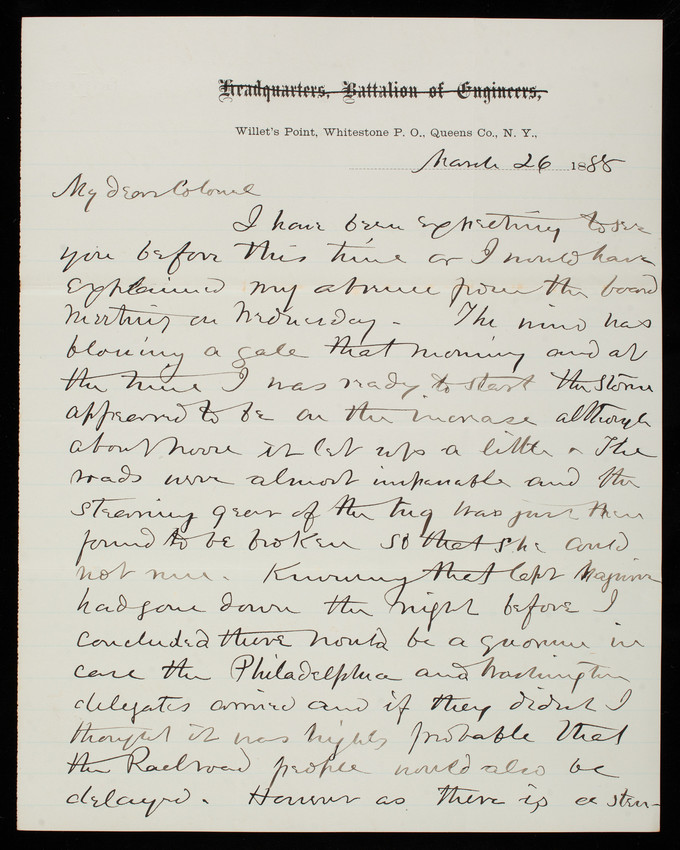 Headquarters, Battalion of Engineers,
Willet's Point, Whitestone P. O., Queens Co., N. Y.,
March 26 1888
My dear Colonel
I have been expecting to see
you before this time or I would have
explained my absence from the board
meeting on Wednesday. The wind was
blowing a gale that morning and at
the time I was ready to start the storm
appeared to be on the increase although
about noon it let up a little. The
roads were almost impassable and the
steering gear of the tug was just then
found to be broken so that she could
not run. Knowing that Capt
had gone down the night before I
concluded there would be a quorum in
case the Philadelphia and Washington
delegates arrived and if they didn't I
thought it was highly probable that
the Railroad people would also be
delayed. However as there is a sten-